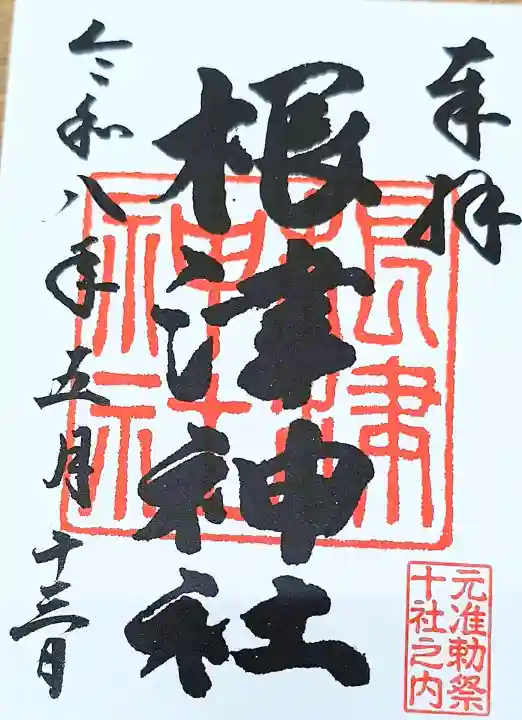 奉拝
根津神社
根津神社
令和八年五月十三日
元准勅祭
十社之内